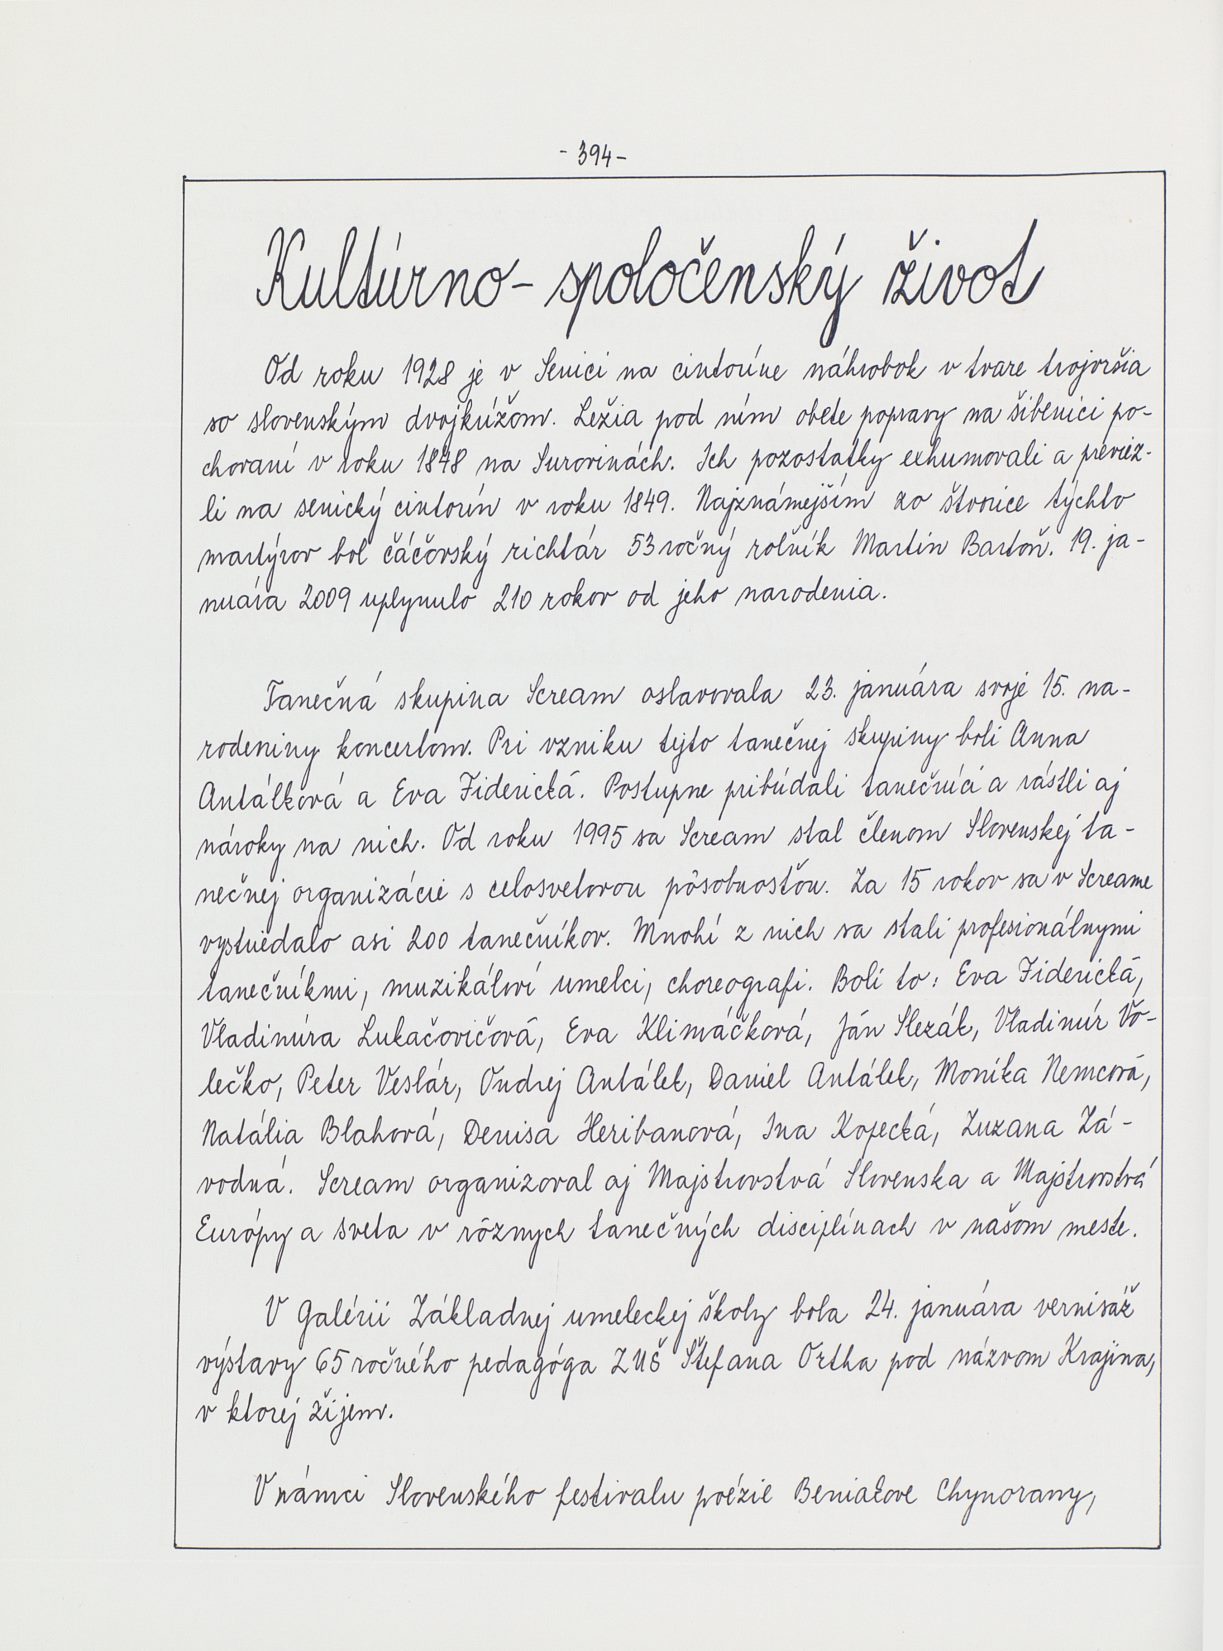 - 394 -
Kultúrno - spoločenský život
Od roku 1928 je v Senici na cintoríne náhrobok v tvare trojvršia
so slovenským dvojkrížom. Ležia pod ním obete popravy na šibenici po-
chovaní v roku 1848 na Surovinách. Ich pozostatky exhumovali a previez-
li na senický cintorín v roku 1849. Najznámejším zo štvorice týchto
martýrov bol čáčovský richtár 53 ročný roľník Martin Bartoň. 19. ja-
nuára 2009 uplynulo 210 rokov od jeho narodenia.
Tanečná skupina Scream oslavovala 23. januára svoje 15. na-
rodeniny koncertom. Pri vzniku tejto tanečnej skupiny boli Anna
Antálková a Eva Fiderická. Postupne pribúdali tanečníci a rástli aj
nároky na nich. Od roku 1995 sa Scream stal členom Slovenskej ta-
nečnej organizácie s celosvetovou pôsobnosťou. Za 15 rokov sa v Screame
vystriedalo asi 200 tanečníkov. Mnohí z nich sa stali profesionálnymi
tanečníkmi, muzikáloví umelci, choreografi. Boli to: Eva Fiderická,
Vladimíra Lukačovičová, Eva Klimáčková, Ján Slezák, Vladimír Vo-
lečko, Peter Veslár, Ondrej Antálek, Daniel Antálek, Monika Nemcová,
Natália Blahová, Denisa Heribanová, Ina Kopecká, Zuzana Zá-
vodná. Scream organizoval aj Majstrovstvá Slovenska a Majstrovstvá
Európy a sveta v rôznych tanečných disciplínach v našom meste.
V Galérii Základnej umeleckej školy bola 24. januára vernisáž
výstavy 65 ročného pedagóga ZUŠ Štefana Ortha pod názvom Krajina,
v ktorej žijem.
V rámci Slovenského festivalu poézie Beniakove Chynorany,